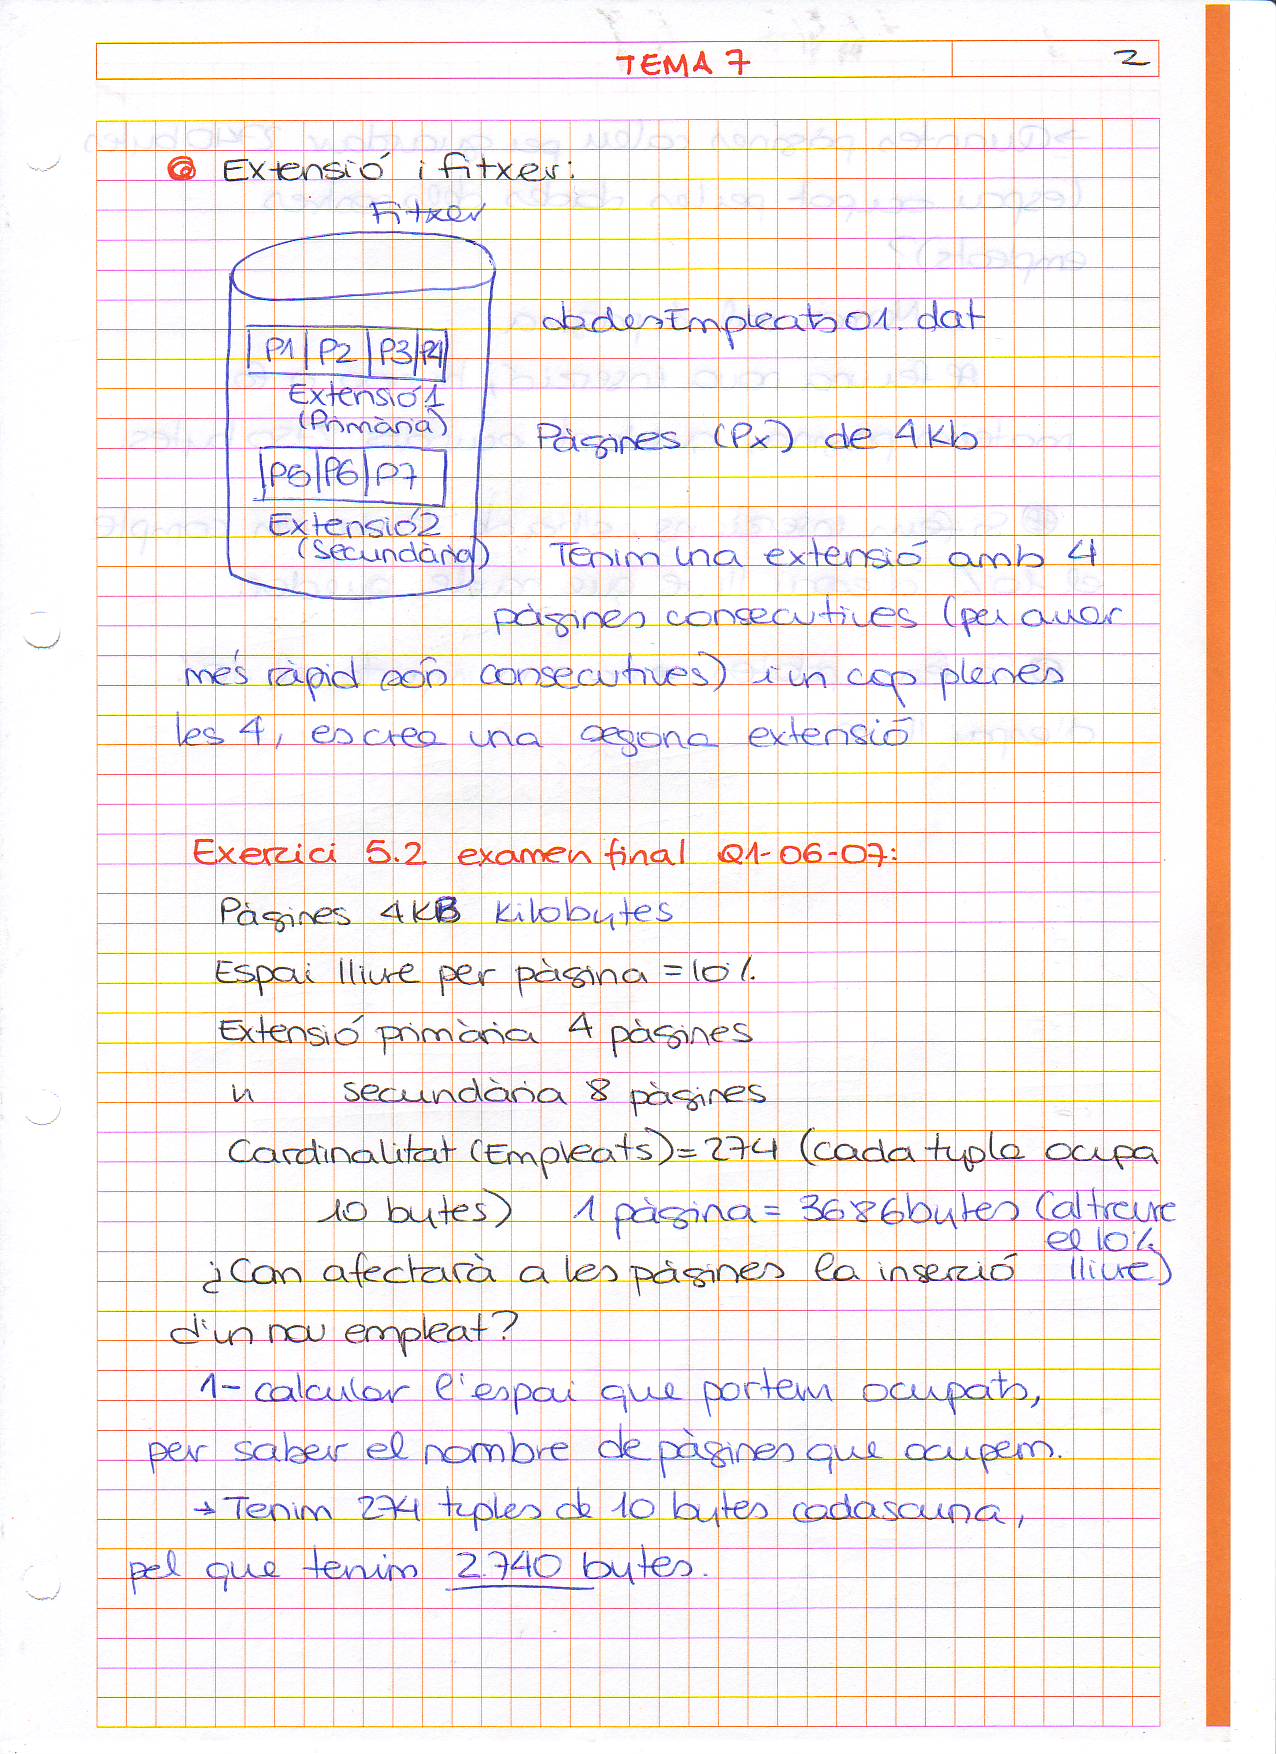 TEMA 7
2
Extensió i fitxer:
Fitxer
dadesEmpleats01.dat
P1 P2 P3 P4
Extensió 1
(Primària)
Pàgines (Px) de 4kb
P5 P6 P7
Extensió 2
(Secundària)
Tenim una extensió amb 4
pàgines consecutives (per anar
més ràpid són consecutives) i un cop plenes
les 4, es crea una segona extensió
Exercici 5.2 examen final Q1-06-07:
Pàgines 4KB Kilobytes
Espai lliure per pàgina = 10%
Extensió primària 4 pàgines
" secundària 8 pàgines
Cardinalitat (Empleats) = 274 (cada tupla ocupa
10 bytes) 1 pàgina = 3686 bytes (al treure
el 10%
lliure)
¿Com afectarà a les pàgines la inserció
d'un nou empleat?
1- calcular l'espai que portem ocupats,
per saber el nombre de pàgines que ocupem.
→ Tenim 274 tuples de 10 bytes cadascuna,
pel que tenim 2.740 bytes.